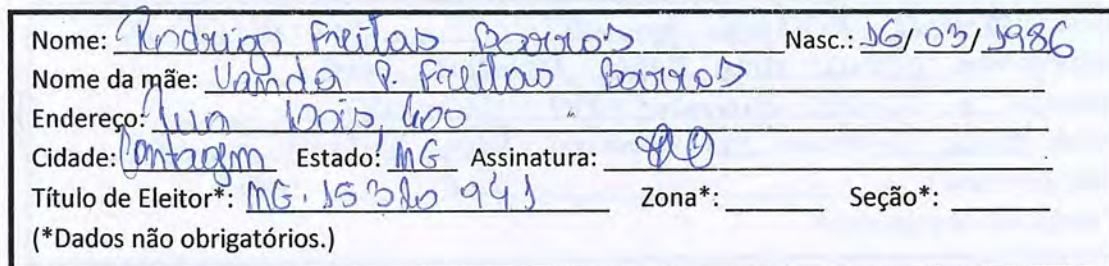 Nome: Rodrigo Freitas Barros Nasc.: 16/03/1986
Nome da mãe: Vanda P. Freitas Barros
Endereço: Rua Dois, 400
Cidade: Contagem Estado: MG Assinatura:
Título de Eleitor*: MG. 15 941 Zona*: Seção*:
(*Dados não obrigatórios.)